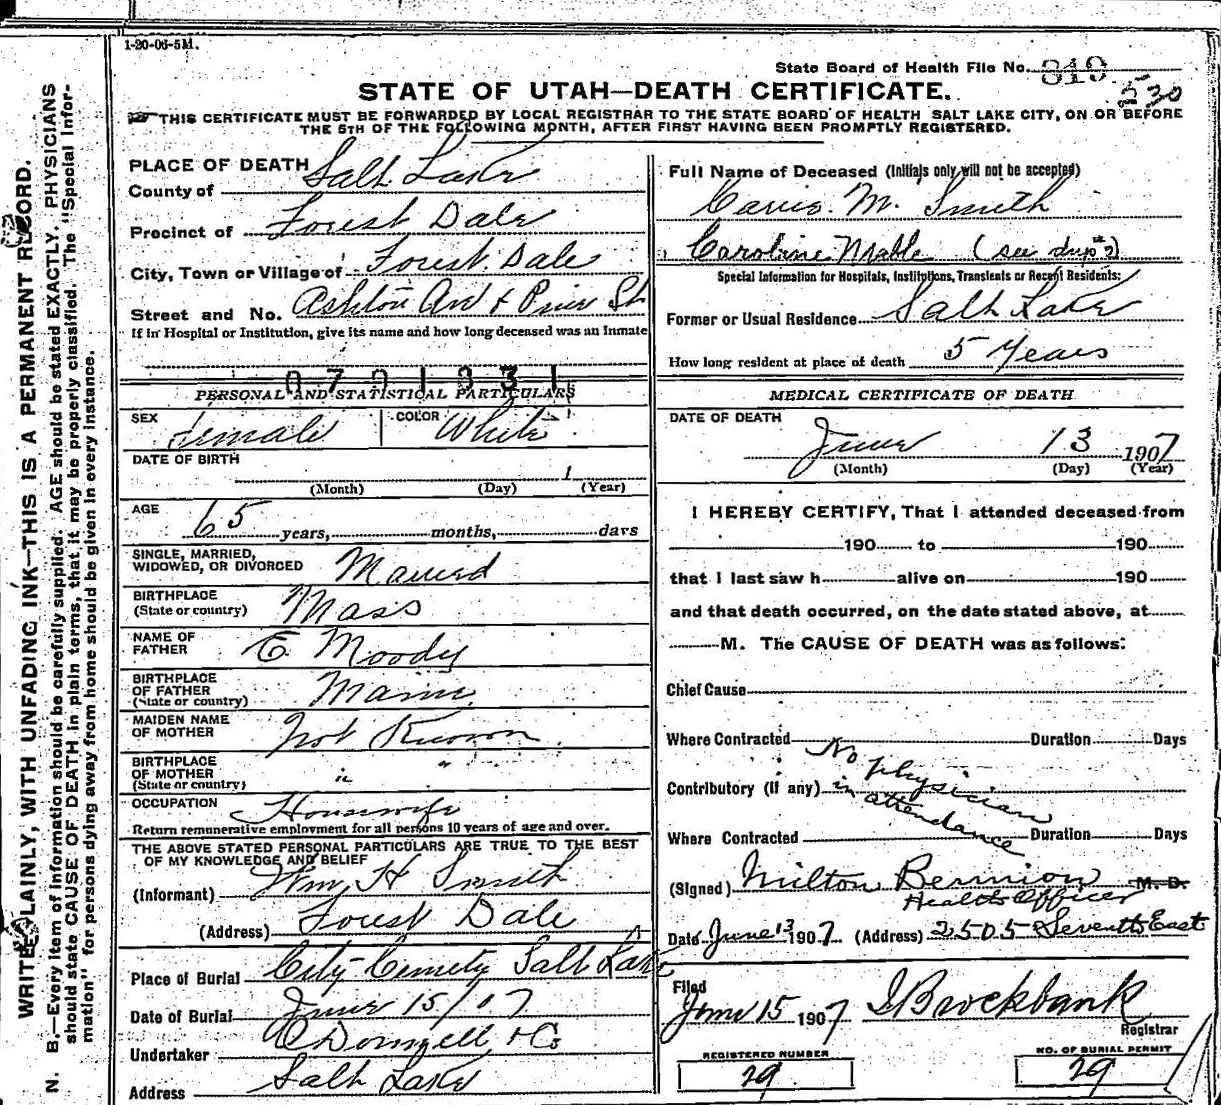 1-20-06-5M.
State Board of Health File No. 819
530
STATE OF UTAH—DEATH CERTIFICATE.
THIS CERTIFICATE MUST BE FORWARDED BY LOCAL REGISTRAR TO THE STATE BOARD OF HEALTH SALT LAKE CITY, ON OR BEFORE
THE 5TH OF THE FOLLOWING MONTH, AFTER FIRST HAVING BEEN PROMPTLY REGISTERED.
WRITE PLAINLY, WITH UNFADING INK—THIS IS A PERMANENT RECORD.
N. B.—Every item of information should be carefully supplied. AGE should be stated EXACTLY. PHYSICIANS
should state CAUSE OF DEATH in plain terms, that it may be properly classified. The "Special Infor-
mation" for persons dying away from home should be given in every instance.
PLACE OF DEATH
County of Salt Lake
Precinct of Forest Dale
City, Town or Village of Forest Dale
Street and No. Ashton Ave & St
If in Hospital or Institution, give its name and how long deceased was an Inmate
0701331
PERSONAL AND STATISTICAL PARTICULARS
SEX Female COLOR White
DATE OF BIRTH 1
(Month) (Day) (Year)
AGE 65 years, months, days
SINGLE, MARRIED,
WIDOWED, OR DIVORCED Married
BIRTHPLACE
(State or country) Mass
NAME OF
FATHER E Moody
BIRTHPLACE
OF FATHER
(State or country) Maine
MAIDEN NAME
OF MOTHER Not Known
BIRTHPLACE
OF MOTHER
(State or country) " "
OCCUPATION Housewife
Return remunerative employment for all persons 10 years of age and over.
THE ABOVE STATED PERSONAL PARTICULARS ARE TRUE TO THE BEST
OF MY KNOWLEDGE AND BELIEF
(Informant) Wm H Smith
(Address) Forest Dale
Place of Burial City Cemety Salt Lake
Date of Burial June 15/07
Undertaker O'Donnell & Co
Address Salt Lake
Full Name of Deceased (Initials only will not be accepted)
Carrie M. Smith
Caroline Mable (see dup #2)
Special Information for Hospitals, Institutions, Transients or Recent Residents:
Former or Usual Residence Salt Lake
How long resident at place of death 5 Years
MEDICAL CERTIFICATE OF DEATH
DATE OF DEATH
June 13 1907
(Month) (Day) (Year)
I HEREBY CERTIFY, That I attended deceased from
190 to 190
that I last saw h alive on 190
and that death occurred, on the date stated above, at
M. The CAUSE OF DEATH was as follows:
Chief Cause
Where Contracted Duration Days
No physician
Contributory (if any) in attendance
Where Contracted Duration Days
(Signed) Milton Bennion M. D.
Health Officer
Date June 13 1907 (Address) 2505 Seventh East
Filed
June 15 1907 I Brockbank
Registrar
REGISTERED NUMBER
29
NO. OF BURIAL PERMIT
29